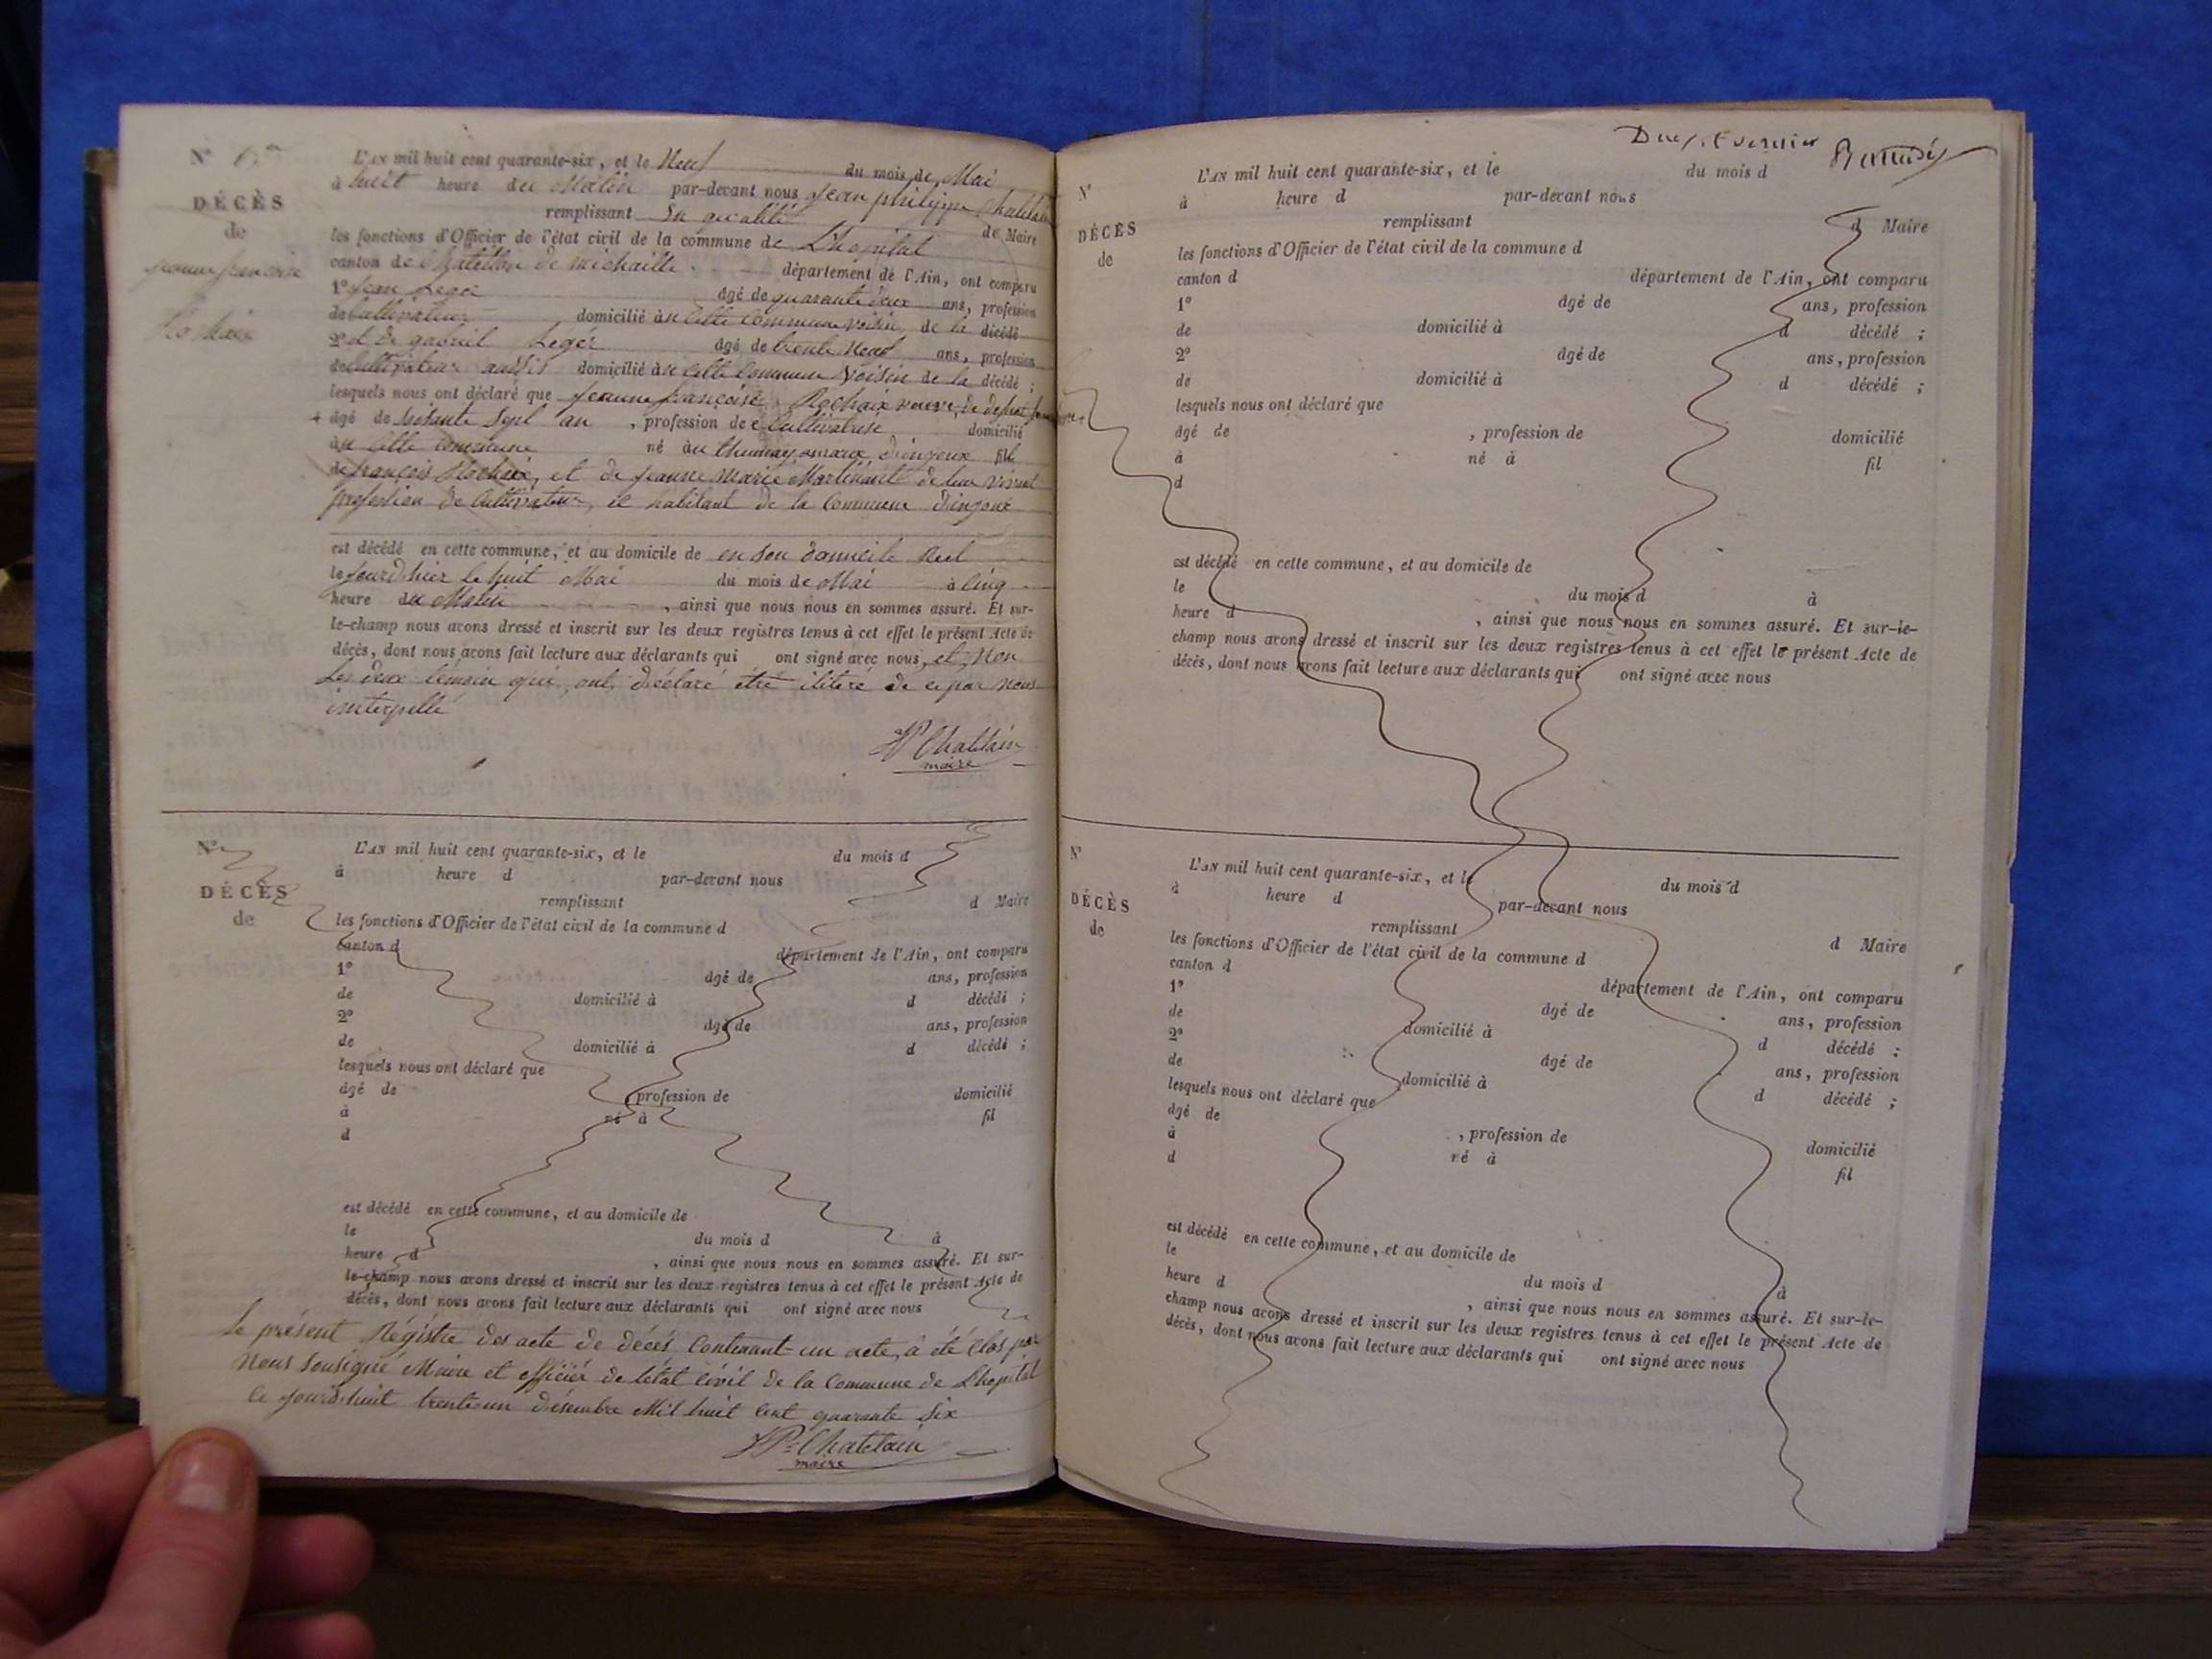 N°
DÉCÈS
de
jeanne françoise
Rochaix
L'AN mil huit cent quarante-six, et le Neuf du mois de Mai
à huit heure du Matin par-devant nous Jean philippe Chatelain
remplissant En qualité de Maire
les fonctions d'Officier de l'état civil de la commune de L'hopital
canton de Chatillon de michaille département de l'Ain, ont comparu
1° Jean Leger âgé de quarante deux ans, profession
de Cultivateur domicilié à en Cette Commune voisin de la décédé
2° et de gabriel Leger âgé de trente Neuf ans, profession
de Cultivateur aussi domicilié à en Cette Commune voisin de la décédé ;
lesquels nous ont déclaré que jeanne françoise Rochaix veuve de defunt
âgé de soisante sept an , profession de Cultivatrise domicilié
à en Cette Commune né à fil
de françois Rochaix, et de jeanne Marie Martinant de leur vivant
profession de Cultivateur, et habitant de la Commune dinjoux
est décédé en cette commune, et au domicile de en son domicile
le jourdhier le huit Mai du mois de Mai à Cinq
heure du Matin , ainsi que nous nous en sommes assuré. Et sur-
le-champ nous avons dressé et inscrit sur les deux registres tenus à cet effet le présent Acte de
décès, dont nous avons fait lecture aux déclarants qui ont signé avec nous, et Non
les deux témoin qui ont déclaré être iliteré de ce par Nous
interpellé
JP Chatelain
maire
N°
DÉCÈS
de
L'AN mil huit cent quarante-six, et le du mois d
à heure d par-devant nous
remplissant d Maire
les fonctions d'Officier de l'état civil de la commune d
canton d département de l'Ain, ont comparu
1° âgé de ans, profession
de domicilié à d décédé ;
2° âgé de ans, profession
de domicilié à d décédé ;
lesquels nous ont déclaré que
âgé de profession de domicilié
à né à fil
d
est décédé en cette commune, et au domicile de
le du mois d à
heure d , ainsi que nous nous en sommes assuré. Et sur-
le-champ nous avons dressé et inscrit sur les deux registres tenus à cet effet le présent Acte de
décès, dont nous avons fait lecture aux déclarants qui ont signé avec nous
Le présent Régistre des acte de décés Contenant un acte, à été Clos par
Nous Sousigné Maire et officier de létat Civil de la Commune de Lhopital
Ce jourdhuit trente un désembre Mil huit Cent quarante Six
JP Chatelain
maire
N°
DÉCÈS
de
L'AN mil huit cent quarante-six, et le du mois d
à heure d par-devant nous
remplissant d Maire
les fonctions d'Officier de l'état civil de la commune d
canton d département de l'Ain, ont comparu
1° âgé de ans, profession
de domicilié à d décédé ;
2° âgé de ans, profession
de domicilié à d décédé ;
lesquels nous ont déclaré que
âgé de , profession de domicilié
à né à fil
d
est décédé en cette commune, et au domicile de
le du mois d à
heure d , ainsi que nous nous en sommes assuré. Et sur-le-
champ nous avons dressé et inscrit sur les deux registres tenus à cet effet le présent Acte de
décès, dont nous avons fait lecture aux déclarants qui ont signé avec nous
N°
DÉCÈS
de
L'AN mil huit cent quarante-six, et le du mois d
à heure d par-devant nous
remplissant d Maire
les fonctions d'Officier de l'état civil de la commune d
canton d département de l'Ain, ont comparu
1° âgé de ans, profession
de domicilié à d décédé ;
2° âgé de ans, profession
de domicilié à d décédé ;
lesquels nous ont déclaré que
âgé de , profession de domicilié
à né à fil
d
est décédé en cette commune, et au domicile de
le du mois d à
heure d , ainsi que nous nous en sommes assuré. Et sur-le-
champ nous avons dressé et inscrit sur les deux registres tenus à cet effet le présent Acte de
décès, dont nous avons fait lecture aux déclarants qui ont signé avec nous